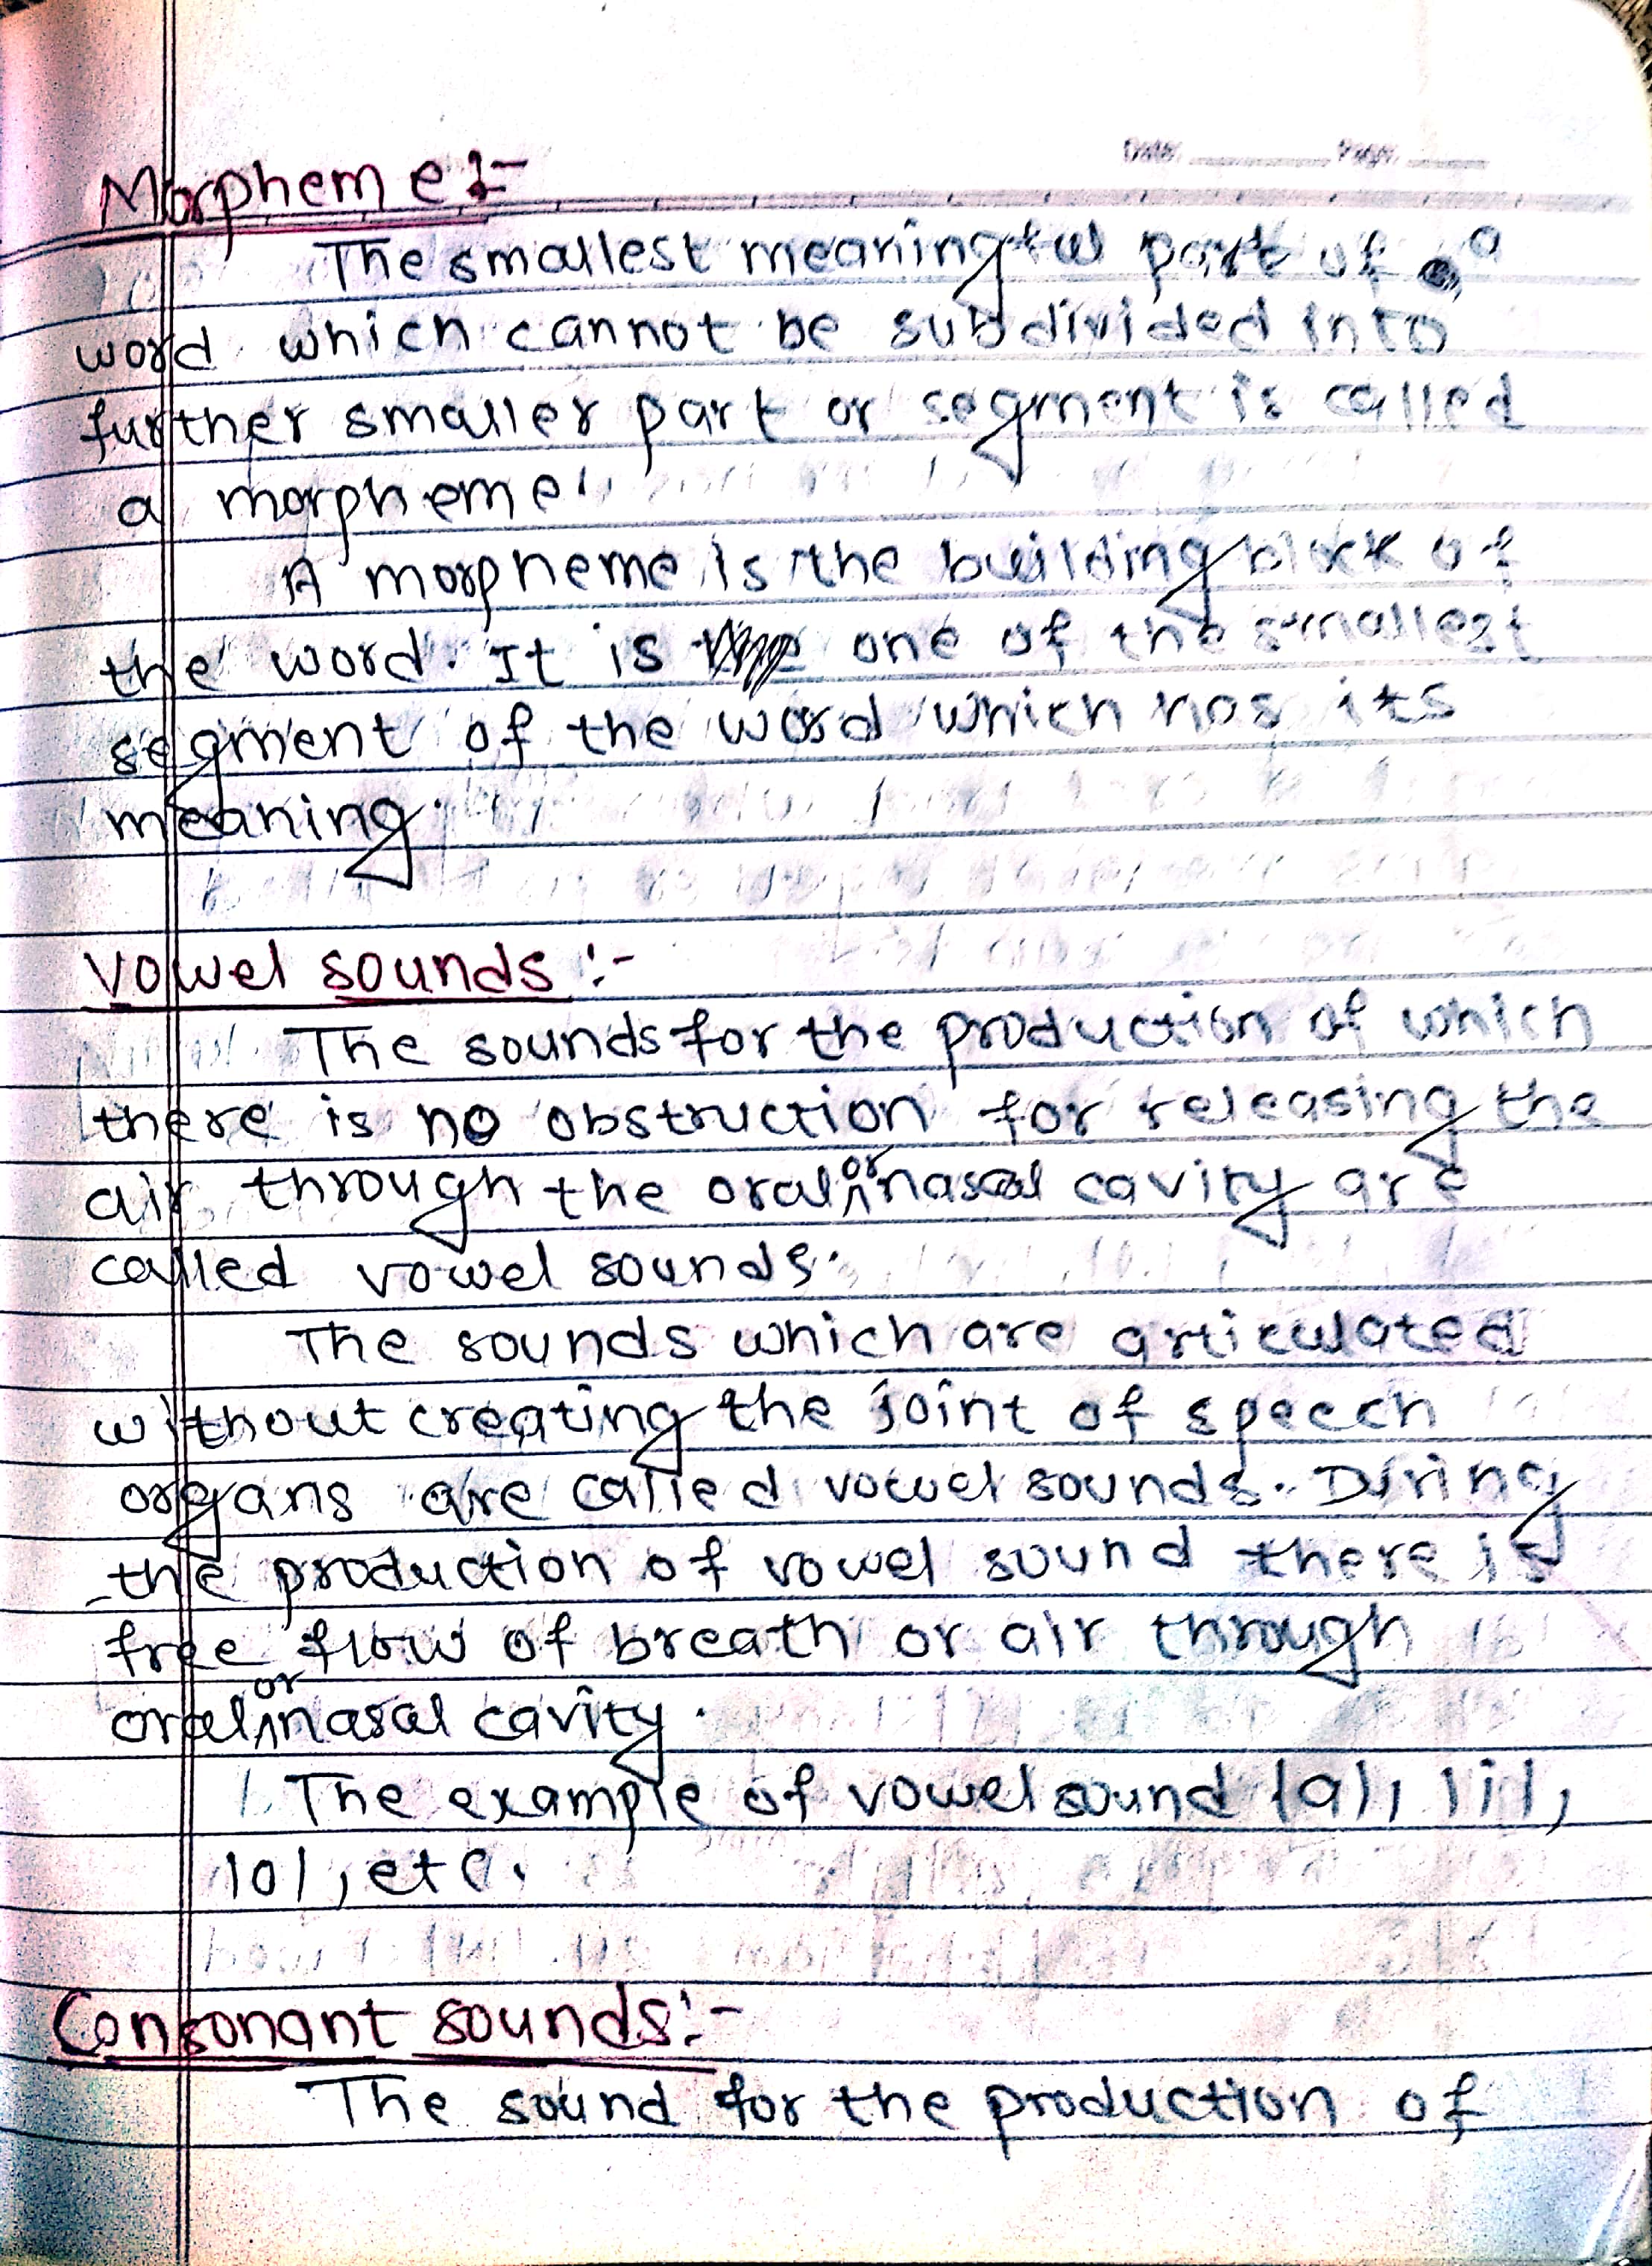 Date: Page:
Morpheme :-
The smallest meaningful part of a
word which cannot be subdivided into
further smaller part or segment is called
a morpheme.
A morpheme is the building block of
the word. It is one of the smallest
segment of the word which has its
meaning.
Vowel sounds :-
The sounds for the production of which
there is no obstruction for releasing the
air through the oral or nasal cavity are
called vowel sounds.
The sounds which are articulated
without creating the joint of speech
organs are called vowel sounds. During
the production of vowel sound there is
free flow of breath or air through
oral or nasal cavity.
The example of vowel sound /a/, /i/,
/o/, etc.
Consonant sounds :-
The sound for the production of